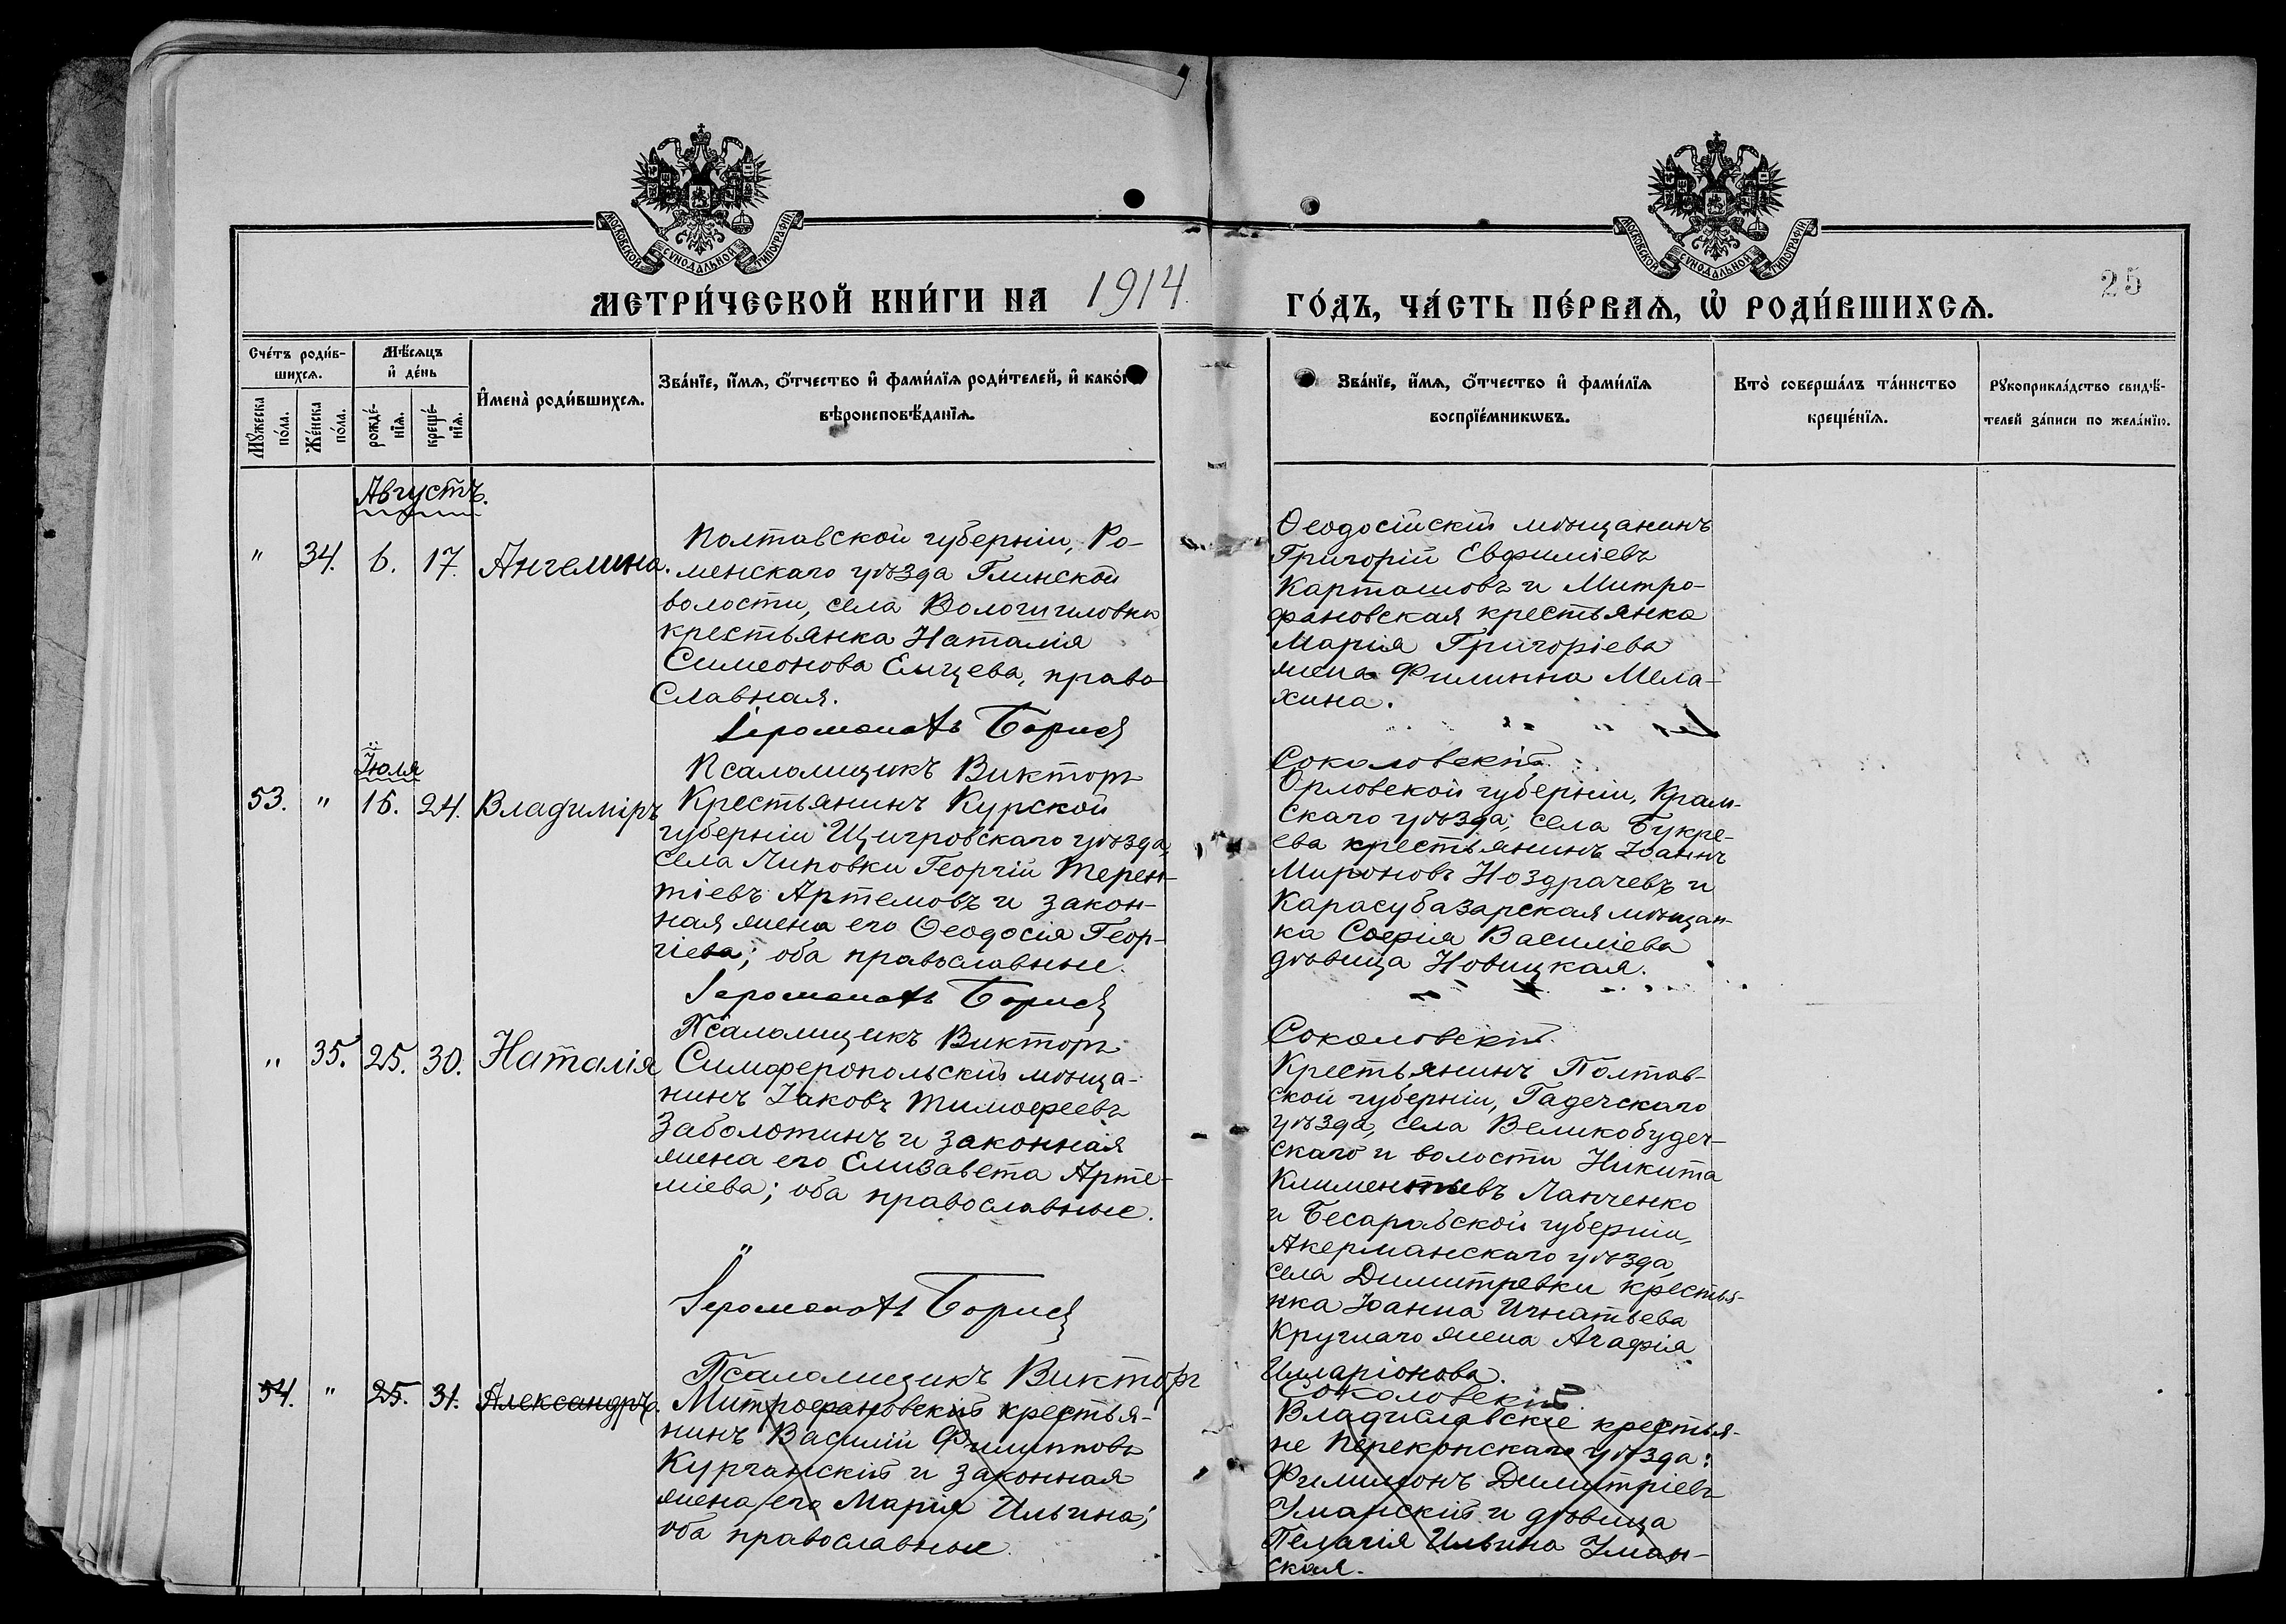 МОСКОВСКОЙ СѴНОДАЛЬНОЙ ТИПОГРАФІИ
МОСКОВСКОЙ СѴНОДАЛЬНОЙ ТИПОГРАФІИ
25
МЕТРИ́ЧЕСКОЙ КНИ́ГИ НА 1914 ГО́ДЪ, ЧА́СТЬ ПЕ́РВАѦ, Ѡ҆ РОДИ́ВШИХСѦ.
Сче́тъ роди́в-
шихсѧ.
Мѣ́сѧцъ
и҆ де́нь
И҆мена̀ роди́вшихсѧ.
Зва́нїе, и҆́мѧ, ѻ҆́тчество и҆ фами́лїѧ роди́телей, и҆ како́гѡ
вѣроисповѣ́данїѧ.
Зва́нїе, и҆́мѧ, ѻ҆́тчество и҆ фами́лїѧ
воспрїе́мникѡвъ.
Кто̀ соверша́лъ та́инство
креще́нїѧ.
Рꙋкоприкла́дство свидѣ́-
телей за́писи по жела́нїю.
Мꙋ́жеска
по́ла.
Же́нска
по́ла.
рожде́-
нїѧ.
креще́-
нїѧ.
Августъ.
" 34. 6. 17. Ангелина.
Полтавской губерніи, Ро-
менскаго уѣзда Глинской
волости, села Волошиловки
крестьянка Наталія
Симеонова Емцева, право-
славная.
Ѳеодосійскій мѣщанинъ
Григорій Евфиміевъ
Карташовъ и Митро-
фановская крестьянка
Марія Григоріева
жена Филиппа Мела-
хина.
Іеромонахъ Борисъ
Псаломщикъ Викторъ
Соколовскій.
Іюля
53. " 15. 24. Владиміръ
Крестьянинъ Курской
губерніи Щигровскаго уѣзда,
села Липовки Георгій Терен-
тіевъ Артемовъ и закон-
ная жена его Ѳеодосія Геор-
гіева; оба православные.
Орловской губерніи, Кром-
скаго уѣзда, села Букре-
ева крестьянинъ Іоаннъ
Мироновъ Ноздрачевъ и
Карасубазарская мѣщан-
ка Софія Василіева
дѣвица Новицкая.
Іеромонахъ Борисъ
Псаломщикъ Викторъ
Соколовскій.
" 35. 25. 30. Наталія
Симферопольскій мѣща-
нинъ Іаковъ Тимофеевъ
Заболотинъ и законная
жена его Елизавета Арте-
міева; оба православные.
Крестьянинъ Полтав-
ской губерніи, Гадечскаго
уѣзда, села Великобудеч-
скаго и волости Никита
Климентьевъ Панченко
и Бесарабской губерніи,
Акерманскаго уѣзда,
села Димитревки крестья-
нка Іоанна Игнатьева
Круглаго жена Агафія
Иларіонова.
"
Іеромонахъ Борисъ
Псаломщикъ Викторъ
Соколовскій
54. " 25. 31. Александръ.
Митрофановскій крестья-
нинъ Василій Филипповъ
Курганскій и законная
жена его Марія Ильина;
оба православные.
Владиславскіе крестья-
не Перекопскаго уѣзда:
Филимонъ Димитріевъ
Уманскій и дѣвица
Пелагія Ильина Уман-
ская.